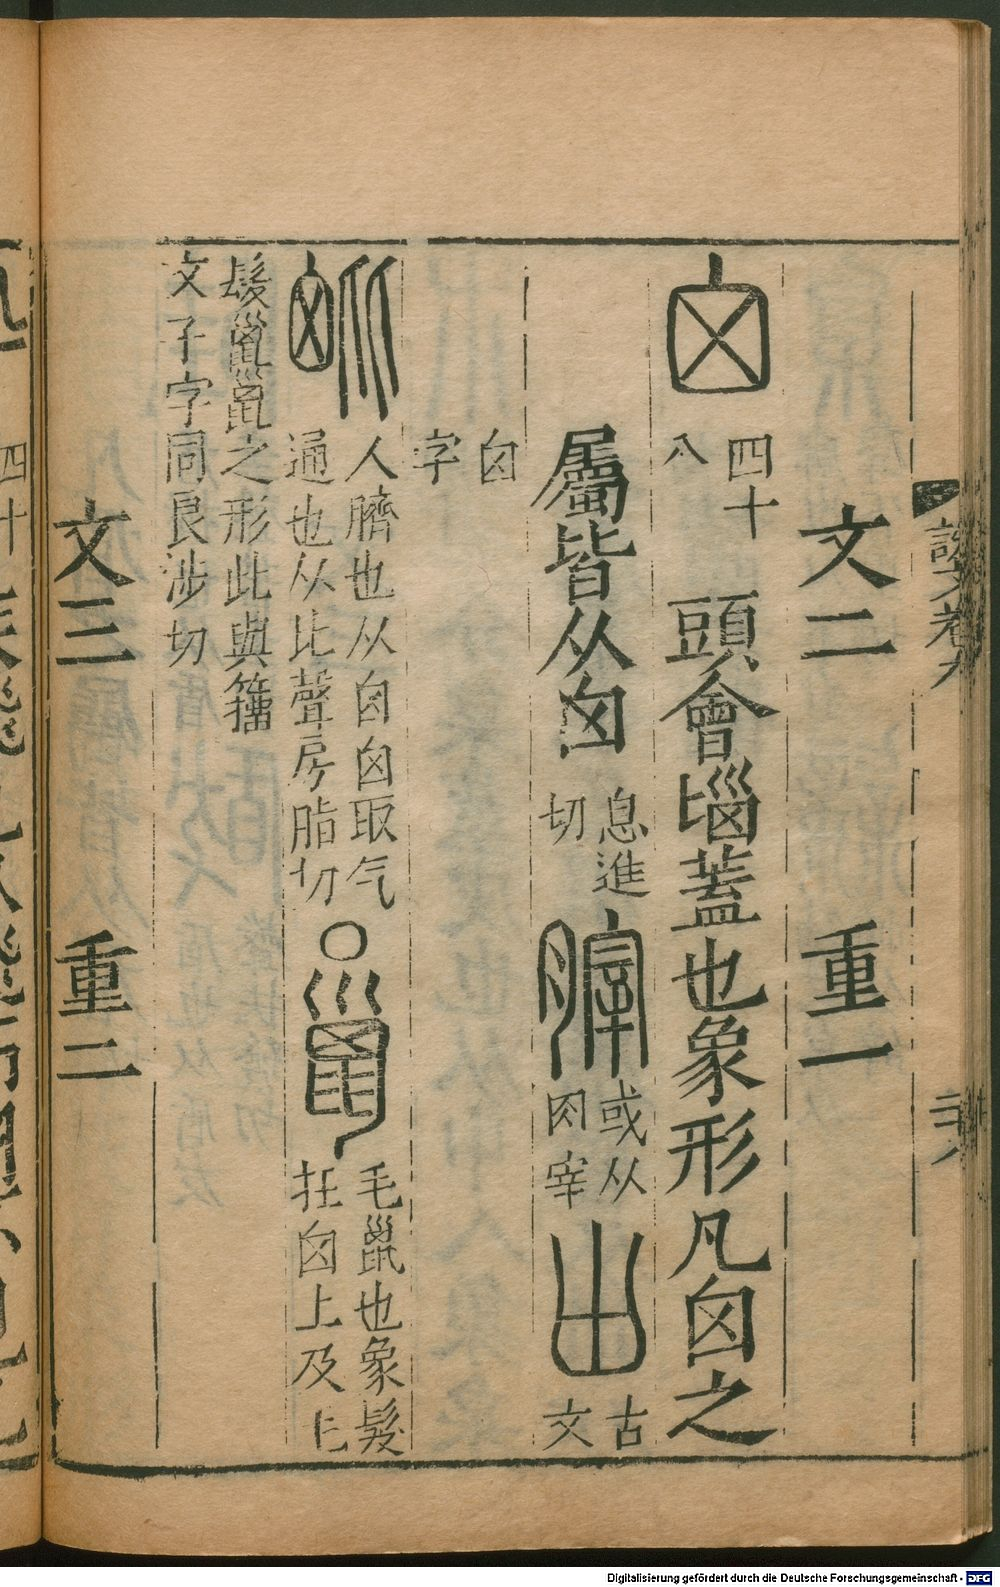 說文卷九
文二 重一
囟 四十八 頭會𡿺蓋也象形凡囟之
屬皆从囟 息進切 𦞤 或从肉宰 𠙷 古文囟
字
𣬉 人臍也从囟囟取气通也从比聲房脂切 ○ 巤 毛巤也象髮在囟上及毛
髮巤巤之形此與籒文子字同良涉切
文三 重二
Digitalisierung gefördert durch die Deutsche Forschungsgemeinschaft - DFG